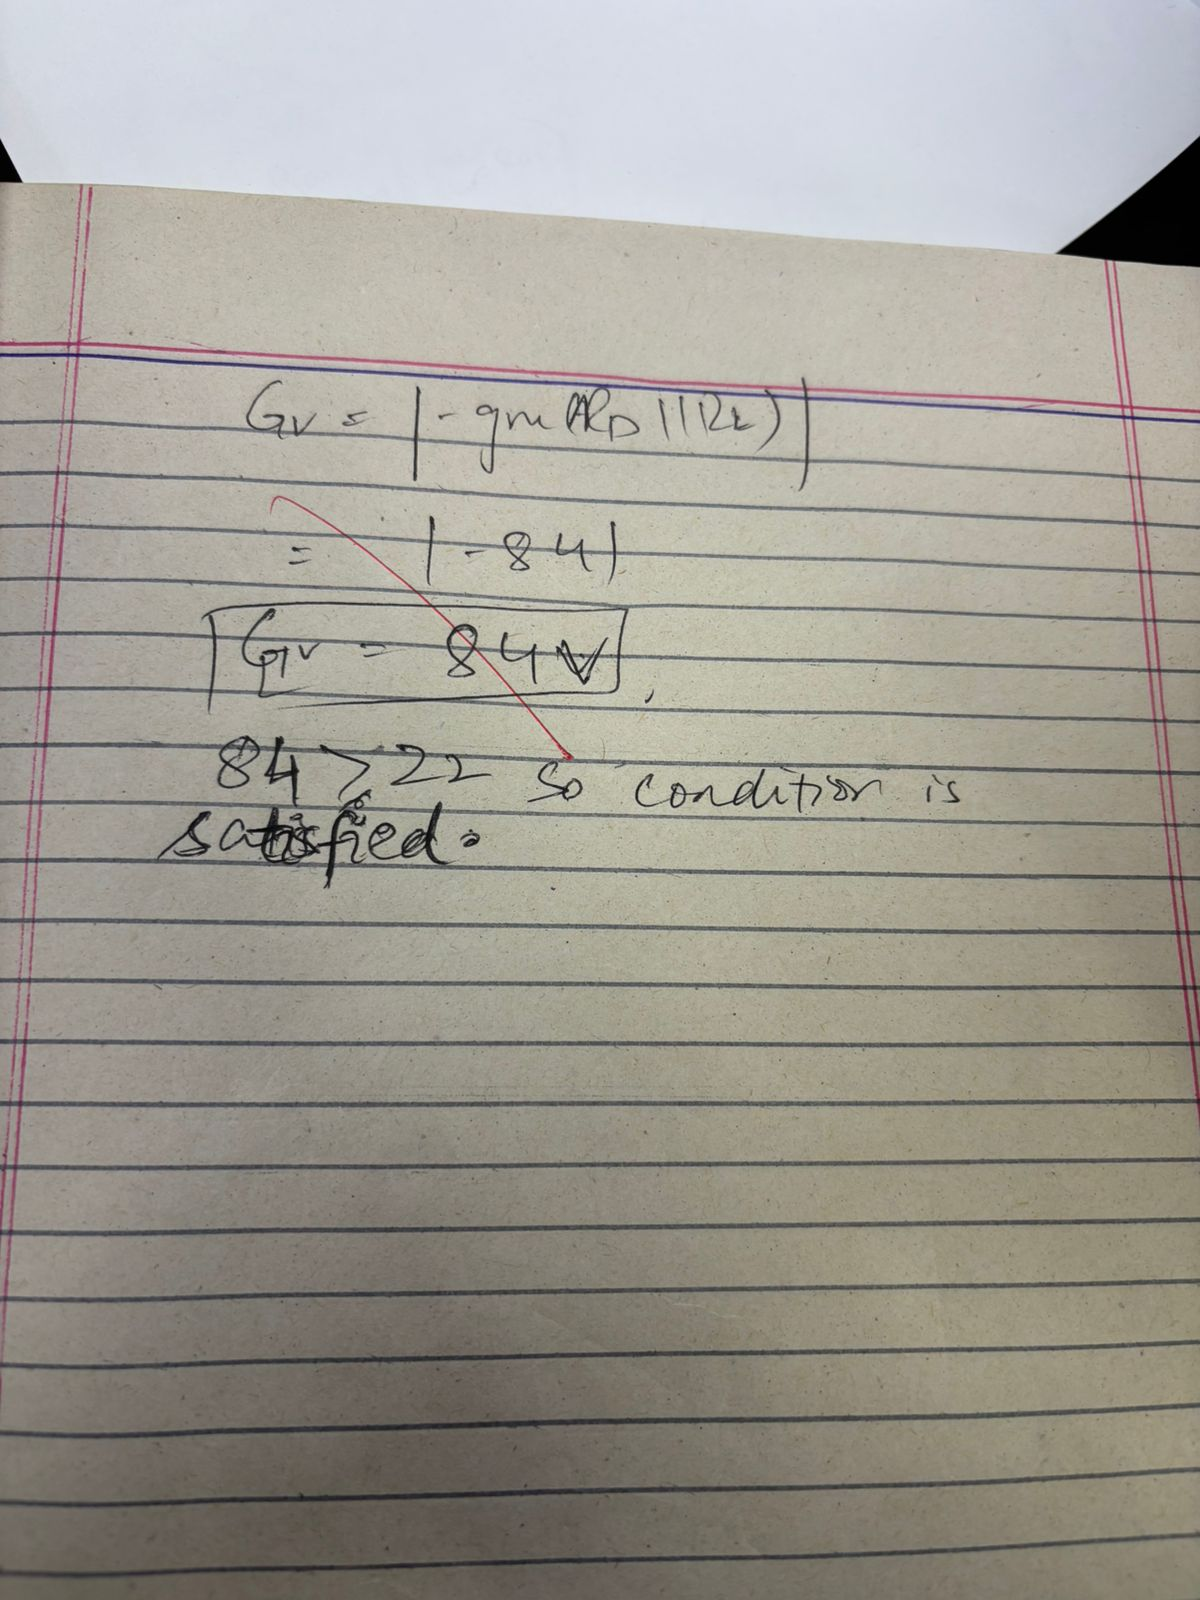 Gv = |-gm(RD||RL)|
= |-84|
Gv = 84V
84 > 22 so condition is
satisfied.